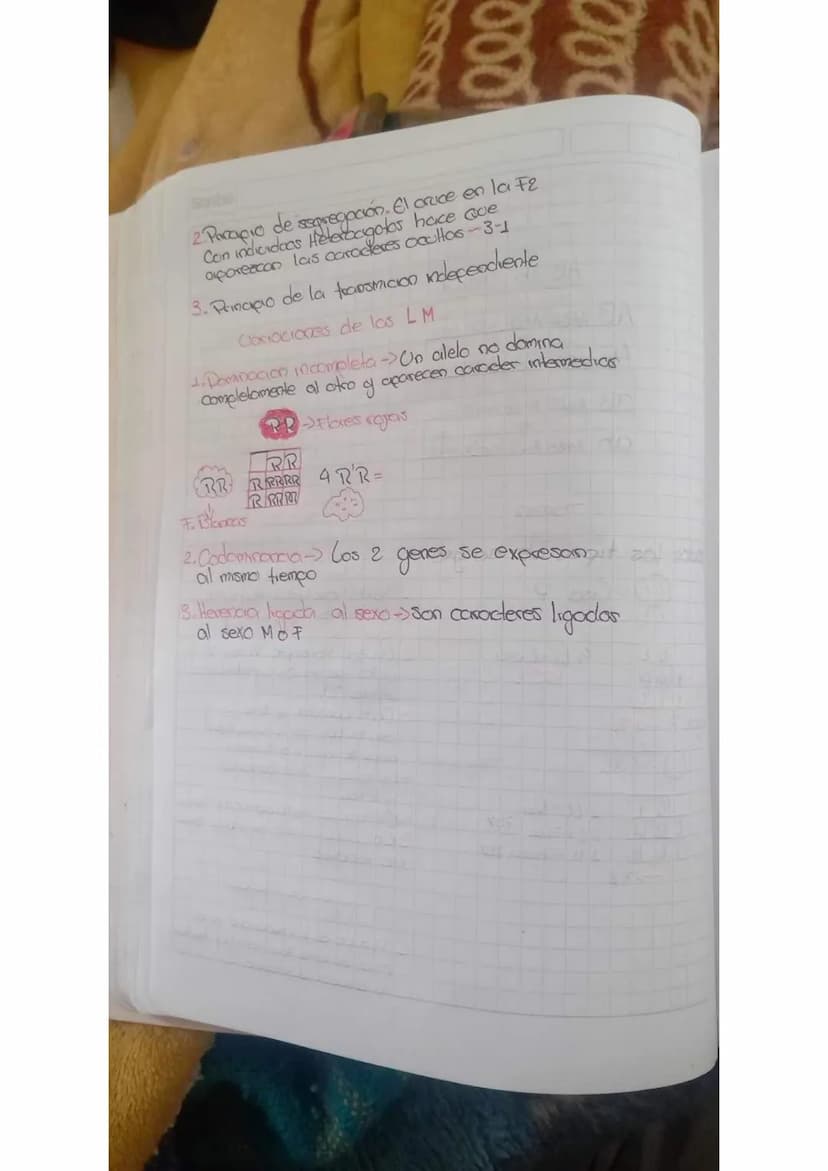 2. Principio de segregación. El cruce en la F2
Con individuos Heterocigotos hace que
aparezcan las caracteres ocultos - 3-1
3. Principio de la transmicion independiente
Variaciones de las LM
1. Dominacion incompleta -> Un alelo no domina
completamente al otro y aparecen caracter intermedios
RR -> Flores rojas
RR
RR R RRRR 4 R'R =
R RRRR
F. Blancas
2. Codominancia -> Los 2 genes se expresan
al mismo tiempo
3. Herencia ligada al sexo -> Son caracteres ligados
al sexo M o F